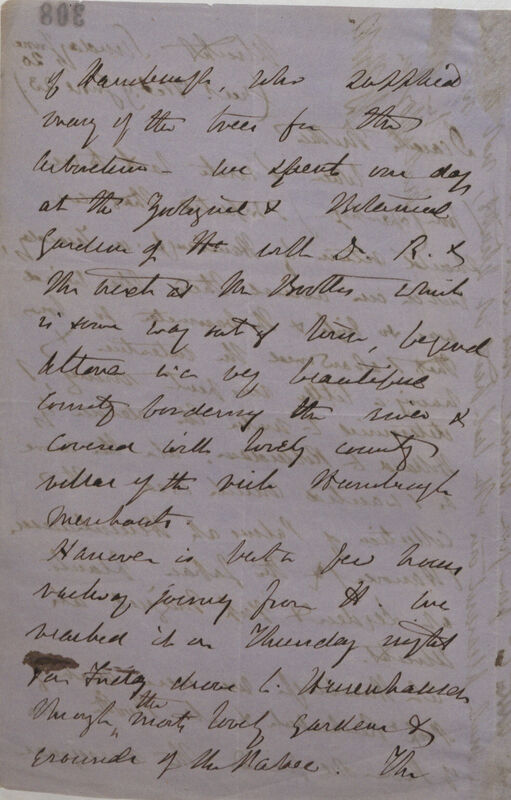 308
of Hamburgh, who supplied
many of the trees for the
Arboretum - we spent one day
at the Zoological & Botanical
Gardens of H. with D. R. &
the next at Mr Booths which
is some way out of town, beyond
Altona in a very beautiful
country bordering the river &
covered with lovely country
villas of the rich Hamburgh
Merchants.
Hanover is but a few hours
railway journey from H. we
reached it on Thursday night
on Friday drove to Herrenhausen
through the most lovely gardens &
grounds of the Palace. The